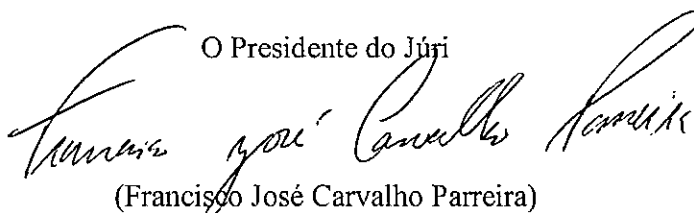 O Presidente do Júri
Francisco José Carvalho Parreira
(Francisco José Carvalho Parreira)